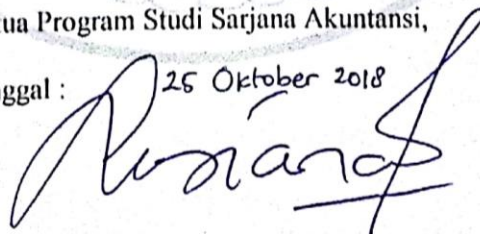 tua Program Studi Sarjana Akuntansi,
nggal : 25 Oktober 2018